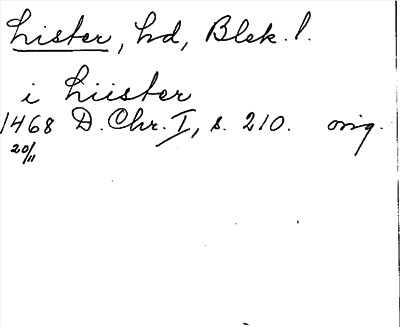 Lister, hd, Blek. l.
i Liister
1468 D. Chr. I, s. 210. orig.
20/11